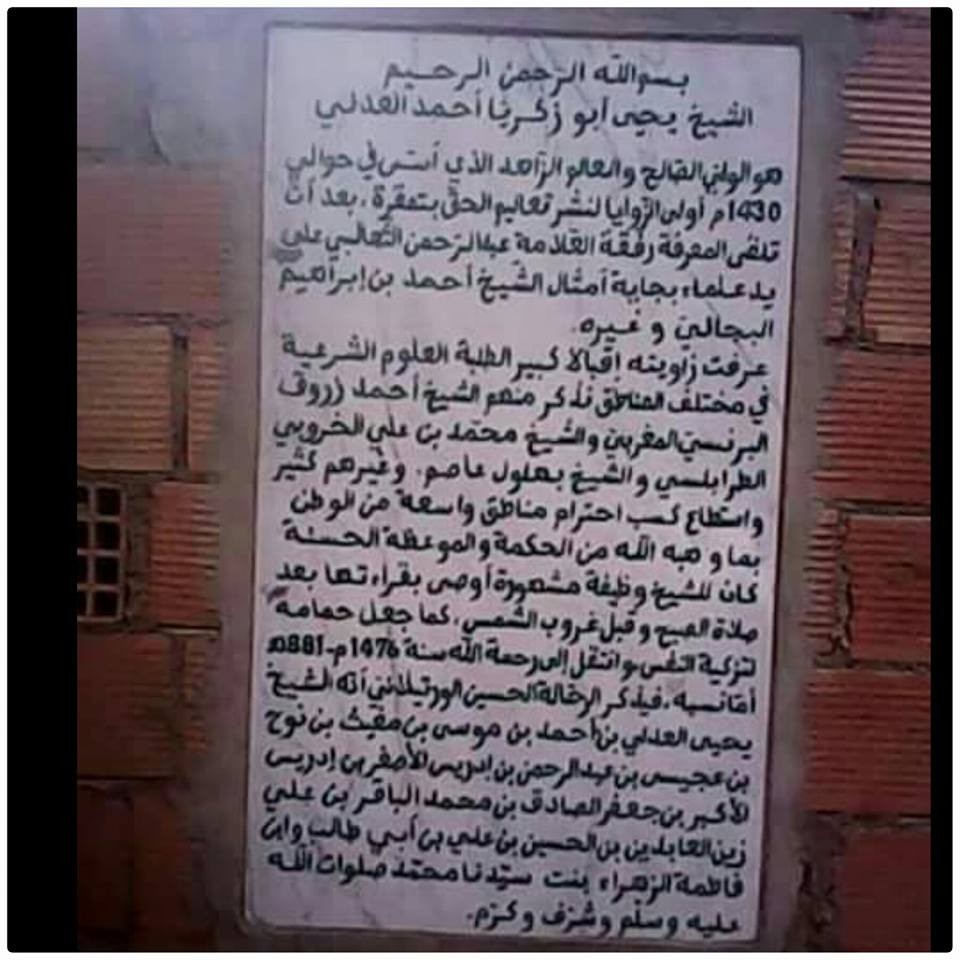 بسم الله الرحمن الرحيم
الشيخ يحيى أبو زكريا أحمد العدلي
هو الولي الصالح والعالم الزاهد الذي أسس في حوالي
1430م أولى الزوايا لنشر تعاليم الحق بتمقرة، بعد أن
تلقى المعرفة رفقة العلامة عبد الرحمن الثعالبي على
يد علماء بجاية أمثال الشيخ أحمد بن إبراهيم
البجائي و غيره.
عرفت زاويته إقبالا كبير الطلبة العلوم الشرعية
في مختلف المناطق نذكر منهم الشيخ أحمد زروق
البرنسي المغربي والشيخ محمد بن علي الخروبي
الطرابلسي والشيخ بهلول عاصم. وغيرهم كثير
واستطاع كسب احترام مناطق واسعة من الوطن
بما وهبه الله من الحكمة والموعظة الحسنة
كان للشيخ وظيفة مشهورة أوصى بقراءتها بعد
صلاة الصبح وقبل غروب الشمس، كما جعل حمامه
لتزكية النفس وانتقل إلى رحمة الله سنة 1476م-881هـ
أما نسبه، فيذكر الرحالة الحسين الورتيلاني أنه الشيخ
يحيى العدلي بن أحمد بن موسى بن مغيث بن نوح
بن عجيسى بن عبد الرحمن بن إدريس الأصغر بن إدريس
الأكبر بن جعفر الصادق بن محمد الباقر بن علي
زين العابدين بن الحسين بن علي بن أبي طالب وابن
فاطمة الزهراء بنت سيّدنا محمّد صلوات الله
عليه وسلّم وشرّف وكرّم.